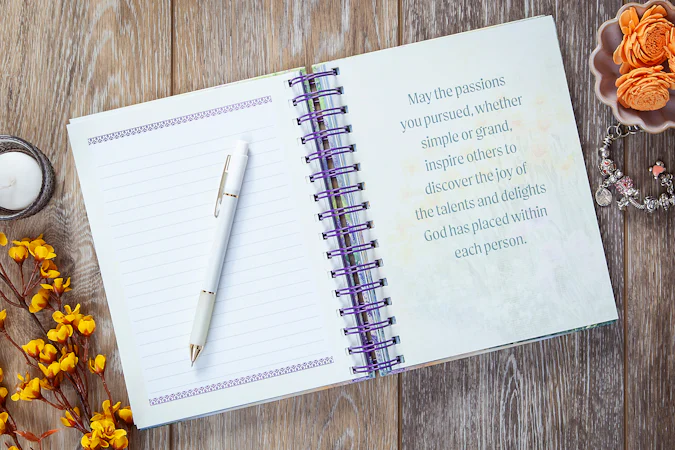 May the passions
you pursued, whether
simple or grand,
inspire others to
discover the joy of
the talents and delights
God has placed within
each person.